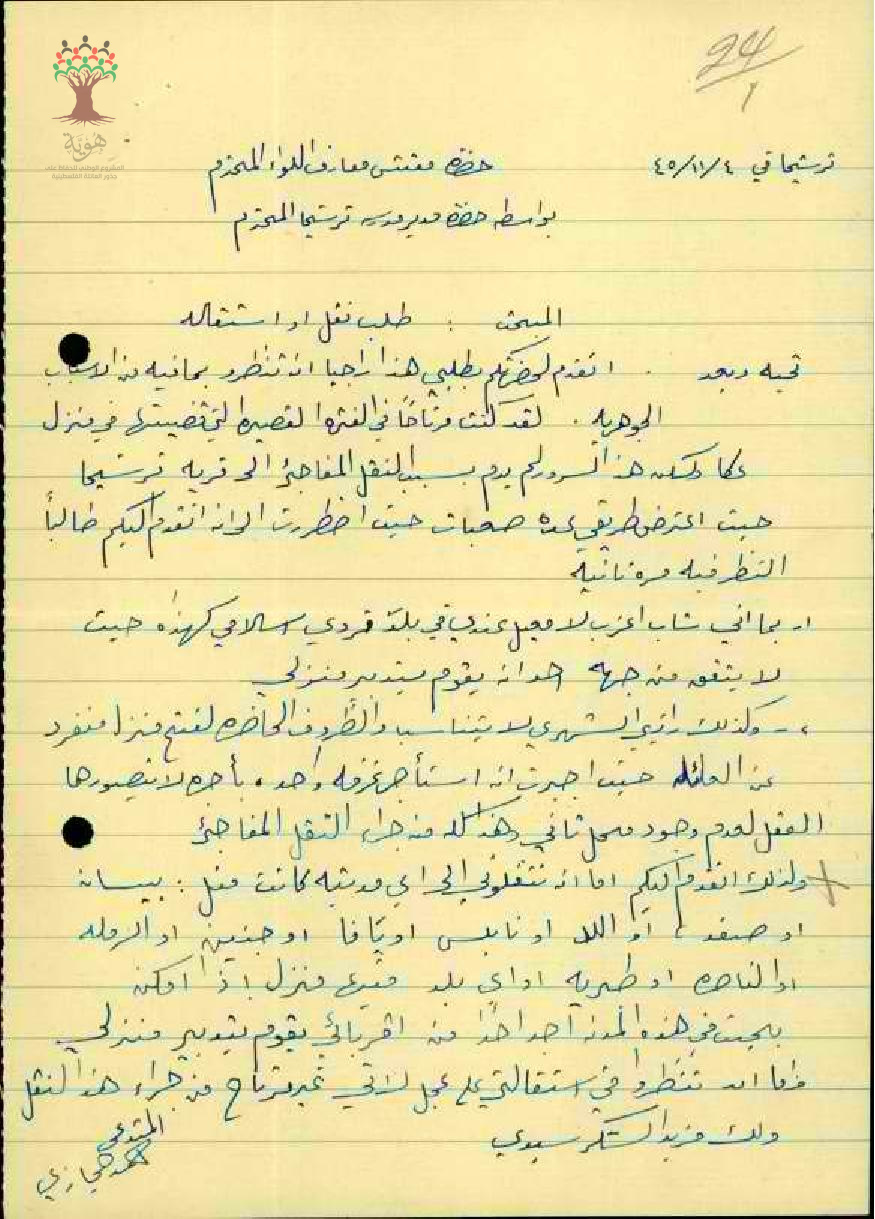 24
1
هُوِيَّة
المشروع الوطني للحفاظ على
جذور العائلة الفلسطينية
ترشيحا في ٤/١١/٤٥
حضرة مفتش معارف اللواء المحترم
بواسطه حضرة مدير مدرسه ترشيحا المحترم
المبحث : طلب نقل او استقاله
تحيه وبعد . اتقدم لحضرتكم بطلبي هذا راجيا ان تنظرو بما فيه من الاسباب
الجوهريه . لقد كنت مرتاحًا في الفتره القصيره التي قضيتها في منزل
عكا ولكن هذا السرور لم يدم بسبب النقل المفاجئ الى قريه ترشيحا
حيث اعترض طريقي عده صعبات حيث اضطررت الى ان اتقدم اليكم طالباً
النظر فيه مره ثانية
١- بما اني شاب اعزب لا معيل عندي في بلد قروي اسلامي كهذه حيث
لا يتفق من جهه احد ان يقوم بتدبير منزلي
٢- وكذلك راتبي الشهري لا يتناسب والظروف الحاضره لفتح منزل منفرد
عن العائله حيث اجبرت ان استأجر غرفه واحده بأجره لا يتصورها
العقل لعدم وجود محل ثاني وهذا كله من جراء النقل المفاجئ
ولذلك اتقدم اليكم اما ان تنقلوني الى اي مدينه كانت مثل : بيسان
او صفد ، او اللد او نابلس او يافا او جنين او الرمله
او الناصره او طبريه او اي بلد فيها منزل اذا امكن
بحيث في هذه المدن اجد احدًا من اقربائي يقوم بتدبير منزلي
واما ان تنظروا في استقالتي على عجل لاني غير مرتاح من جراء هذا النقل
ولك مزيد الشكر سيدي
المستدعي
حجازي